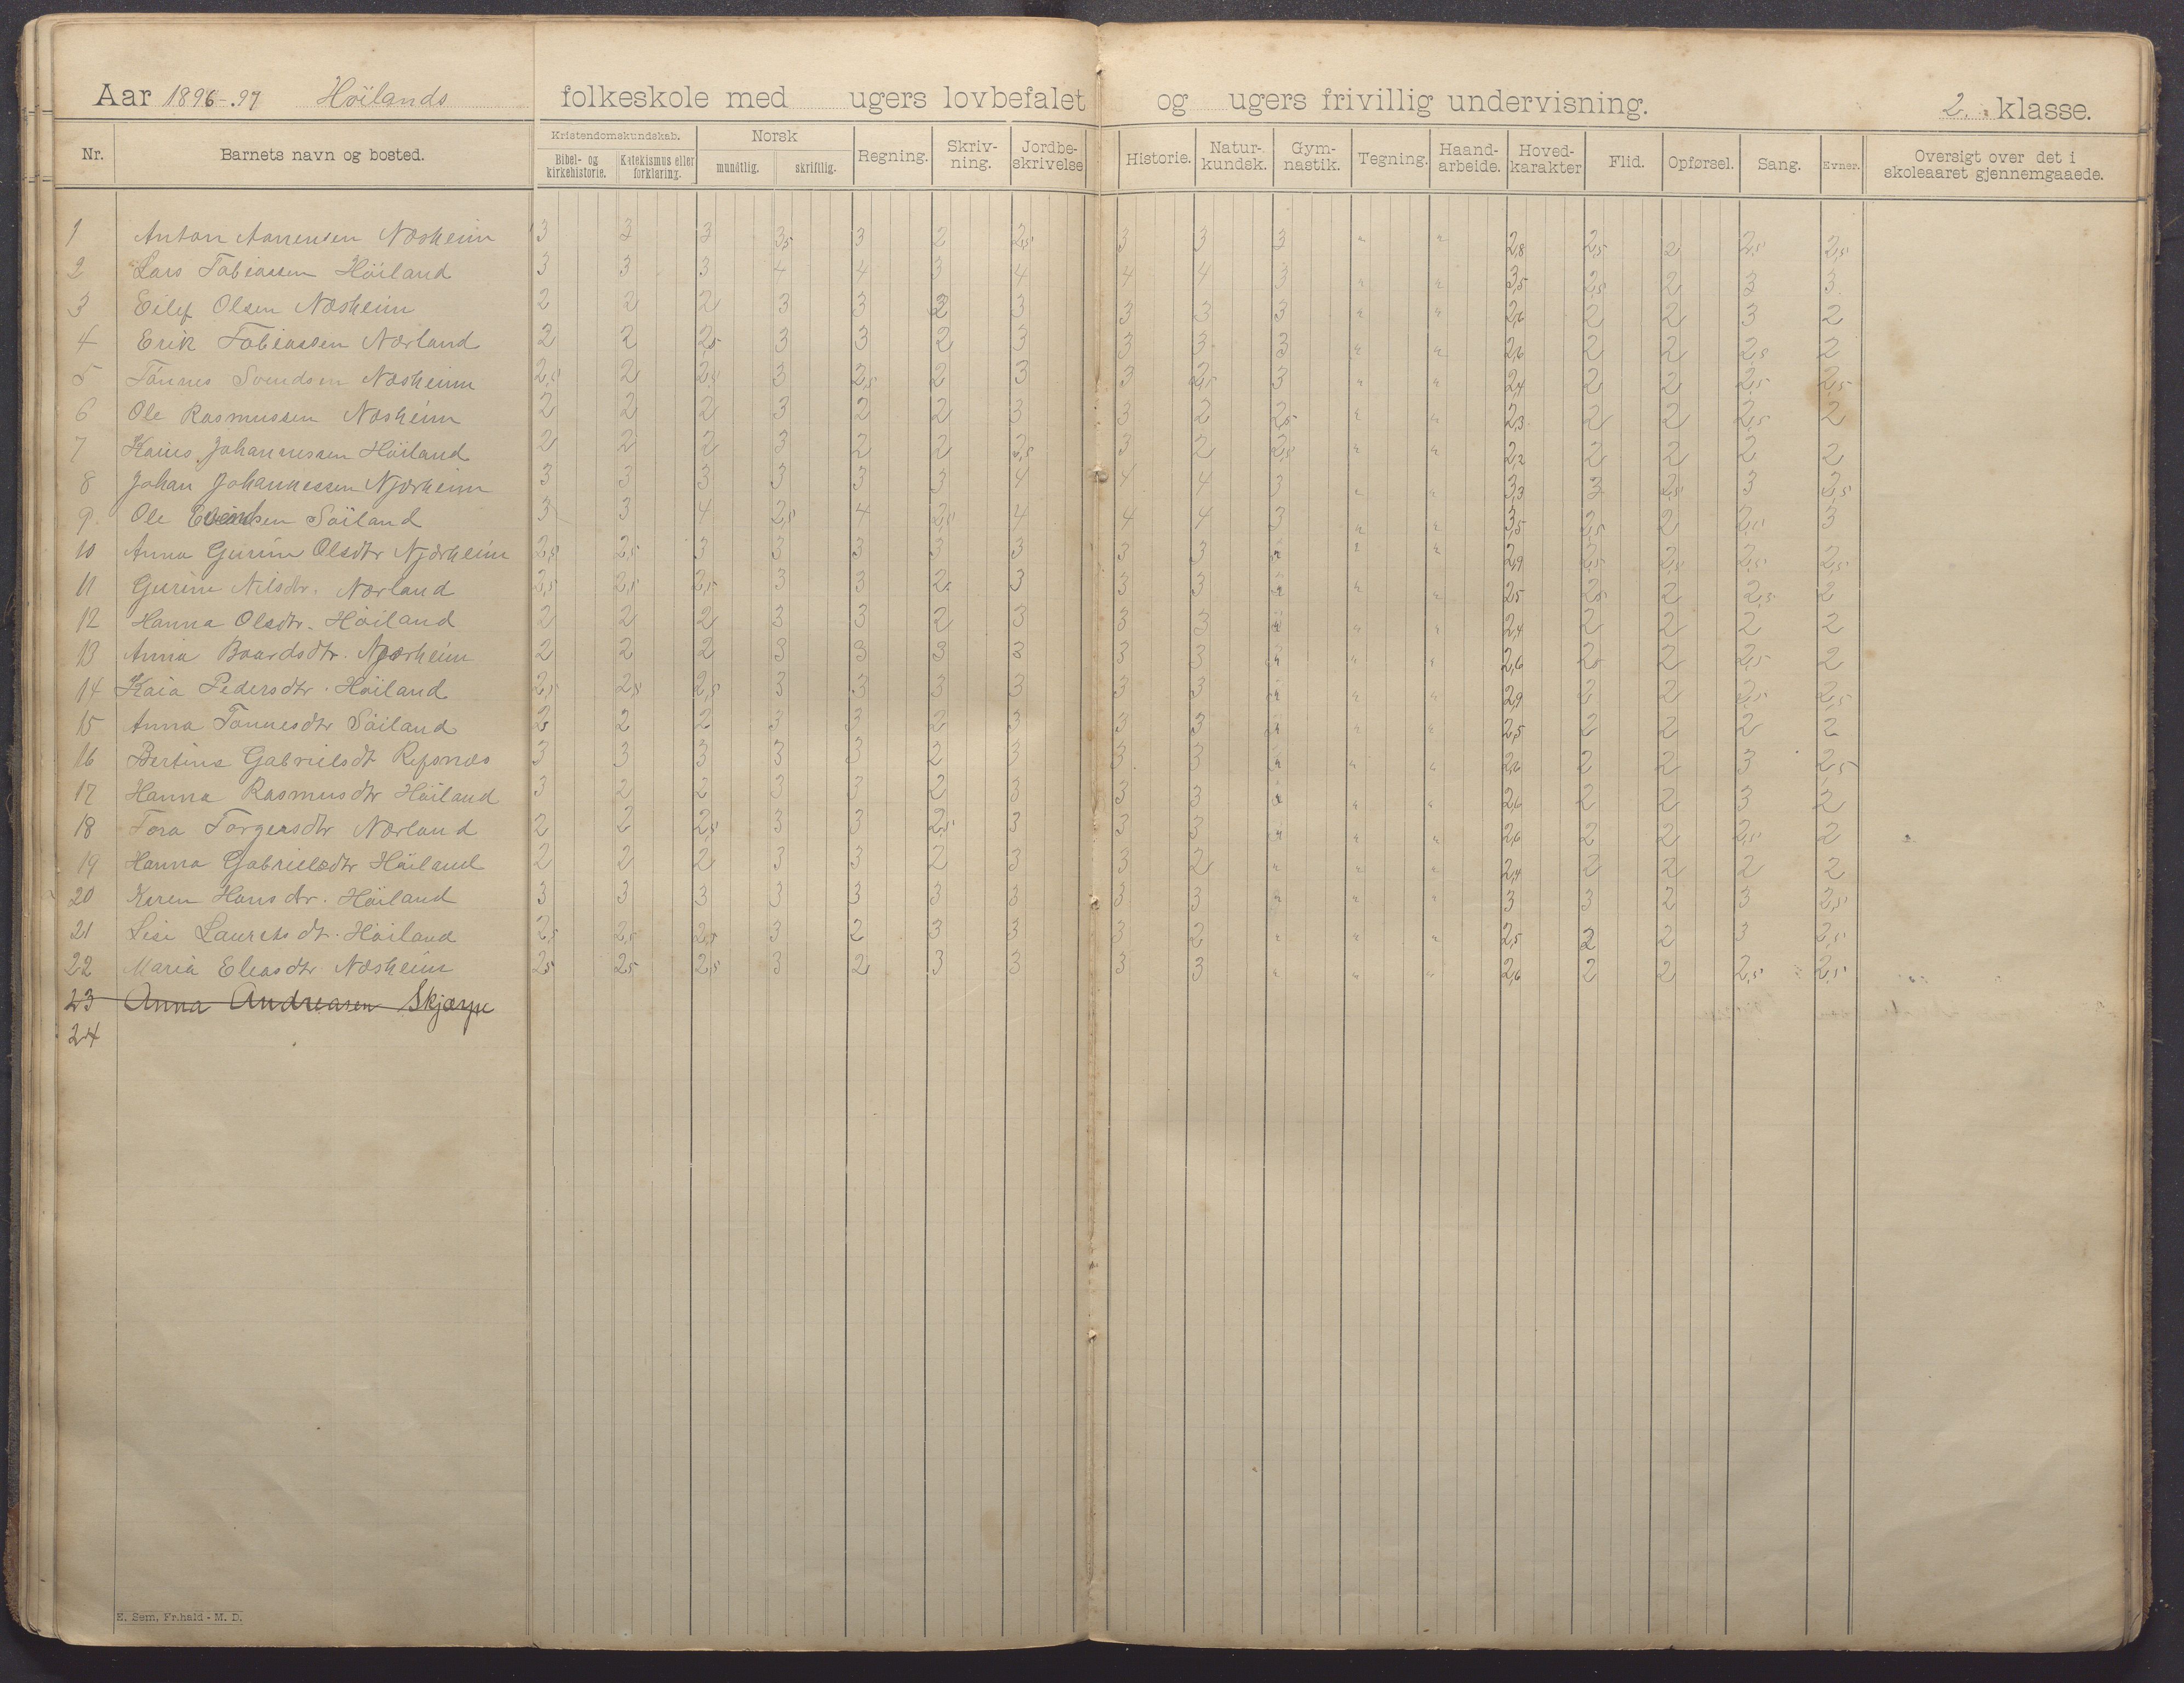 Aar 1896-97 Höilands folkeskole med ugers lovbefalet og ugers frivillig undervisning. 2. klasse.
Nr. Barnets navn og bosted. Kristendomskundskab. Bibel- og kirkehistorie. Katekismus eller forklaring. Norsk mundtlig. skriftlig. Regning. Skriv-ning. Jordbe-skrivelse Historie. Natur-kundsk. Gym-nastik. Tegning. Haand-arbeide. Hoved-karakter Flid. Opførsel. Sang. Evner. Oversigt over det i skoleaaret gjennemgaaede.
1 Anton Aanensen Næsheim 3 3 3 3,5 3 2 2,5 3 3 3 " " 2,8 2,5 2 2,5 2,5
2 Lars Tobiassen Höiland 3 3 3 4 4 3 4 4 4 3 " " 3,5 2,5 2 3 3
3 Eilef Olsen Næsheim 2 2 2 3 3 2 3 3 3 3 " " 2,6 2 2 3 2
4 Erik Tobiassen Nærland 2 2 2,5 3 3 2 3 3 3 3 " " 2,6 2 2 2,5 2
5 Tönnes Svendsen Næsheim 2,5 2 2,5 3 2,5 2 3 3 2,5 3 " " 2,4 2 2 2,5 2,5
6 Ole Rasmussen Næsheim 2 2 2 3 2 2 3 3 2 2,5 " " 2,3 2 2 2,5 2
7 Johannessen Höiland 2 2 2 3 2 2 2,5 3 2 2,5 " " 2,2 2 2 2 2
8 Johan Johannessen Njærheim 3 3 3 3 3 3 4 4 4 3 " " 3,3 3 2,5 3 2,5
9 Ole Söiland 3 3 4 2,5 4 2,5 4 4 4 3 " " 3,5 2,5 2 2,5 3
10 Anna Gurine Olsdtr Njærheim 2,5 2,5 3 3 3 3 3 3 3 " " " 2,9 2,5 2,5 2,5 2,5
11 Gurine Nilsdtr. Nærland 2,5 2,5 2,5 3 3 2 3 3 3 " " " 2,5 2,5 2 2,5 2
12 Hanna Olsdtr. Höiland 2 2 2 3 3 2 3 3 3 " " " 2,4 2 2 2 2
13 Anna Baardsdtr. Njærheim 2 2 2 3 3 3 3 3 3 " " " 2,6 2 2 2,5 2
14 Kaia Pedersdtr. Höiland 2,5 2,5 2,5 3 3 3 3 3 3 " " " 2,9 2 2 2,5 2,5
15 Anna Tönnesdtr Söiland 2,5 2 2 3 3 2 3 3 3 " " " 2,5 2 2 2 2
16 Bertine Gabrielsdt Refsnæs 3 3 3 3 3 2 3 3 3 " " " 2,6 2 2 3 2,5
17 Hanna Rasmusdtr Höiland 3 2 2 3 3 2 3 3 3 " " " 2,6 2 2 3 2
18 Tora Torgersdtr Nærland 2 2 2,5 3 3 2,5 3 3 3 " " " 2,6 2 2 2,5 2
19 Hanna Gabrielsdtr Höiland 2 2 2 3 3 2 3 3 2 " " " 2,4 2 2 2 2
20 Karen Hansdtr. Höiland 3 3 3 3 3 3 3 3 3 " " " 3 3 2 3 2,5
21 Lise Lauritsdt. Höiland 2,5 2,5 2,5 3 2 3 3 3 2 " " " 2,5 2 2 3 2,5
22 Maria Eliasdtr. Næsheim 2,5 2,5 2,5 3 2 3 3 3 3 " " " 2,6 2 2 2,5 2,5
23 Anna Andreasen Skjærpe
24
E. Sem, Fr.hald - M. D.